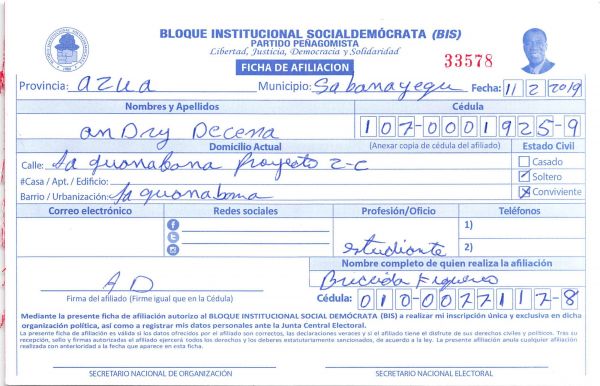 BLOQUE INSTITUCIONAL SOCIALDEMÓCRATA (BIS)
PARTIDO PEÑAGOMISTA
Libertad, Justicia, Democracia y Solidaridad
FICHA DE AFILIACION
33578
Provincia: azua Municipio: Sabanayegua Fecha: 11 2 2019
Nombres y Apellidos Cédula
anDry Decena 107-0001925-9
Domicilio Actual (Anexar copia de cédula del afiliado) Estado Civil
Calle: La guanabana Proyecto 2-C Casado
#Casa / Apt. / Edificio: Soltero
Barrio / Urbanización: La guanabana Conviviente
Correo electrónico Redes sociales Profesión/Oficio Teléfonos
1)
estudiante 2)
Nombre completo de quien realiza la afiliación
A D
Firma del afiliado (Firme igual que en la Cédula) Cédula: 010-0077117-8
Mediante la presente ficha de afiliación autorizo al BLOQUE INSTITUCIONAL SOCIAL DEMÓCRATA (BIS) a realizar mi inscripción única y exclusiva en dicha
organización política, así como a registrar mis datos personales ante la Junta Central Electoral.
La presente ficha de afiliación es válida si los datos ofrecidos por el afiliado son correctos, las declaraciones veraces y si el afiliado tiene el disfrute de sus derechos civiles y políticos. Tras su
recepción, sello y firmas autorizadas el afiliado ejercerá todos los derechos y los deberes estatutariamente sancionados, de acuerdo a la ley. La presente afiliación anula cualquier afiliación
realizada con anterioridad a la fecha que aparece en esta ficha.
SECRETARIO NACIONAL DE ORGANIZACIÓN SECRETARIO NACIONAL ELECTORAL